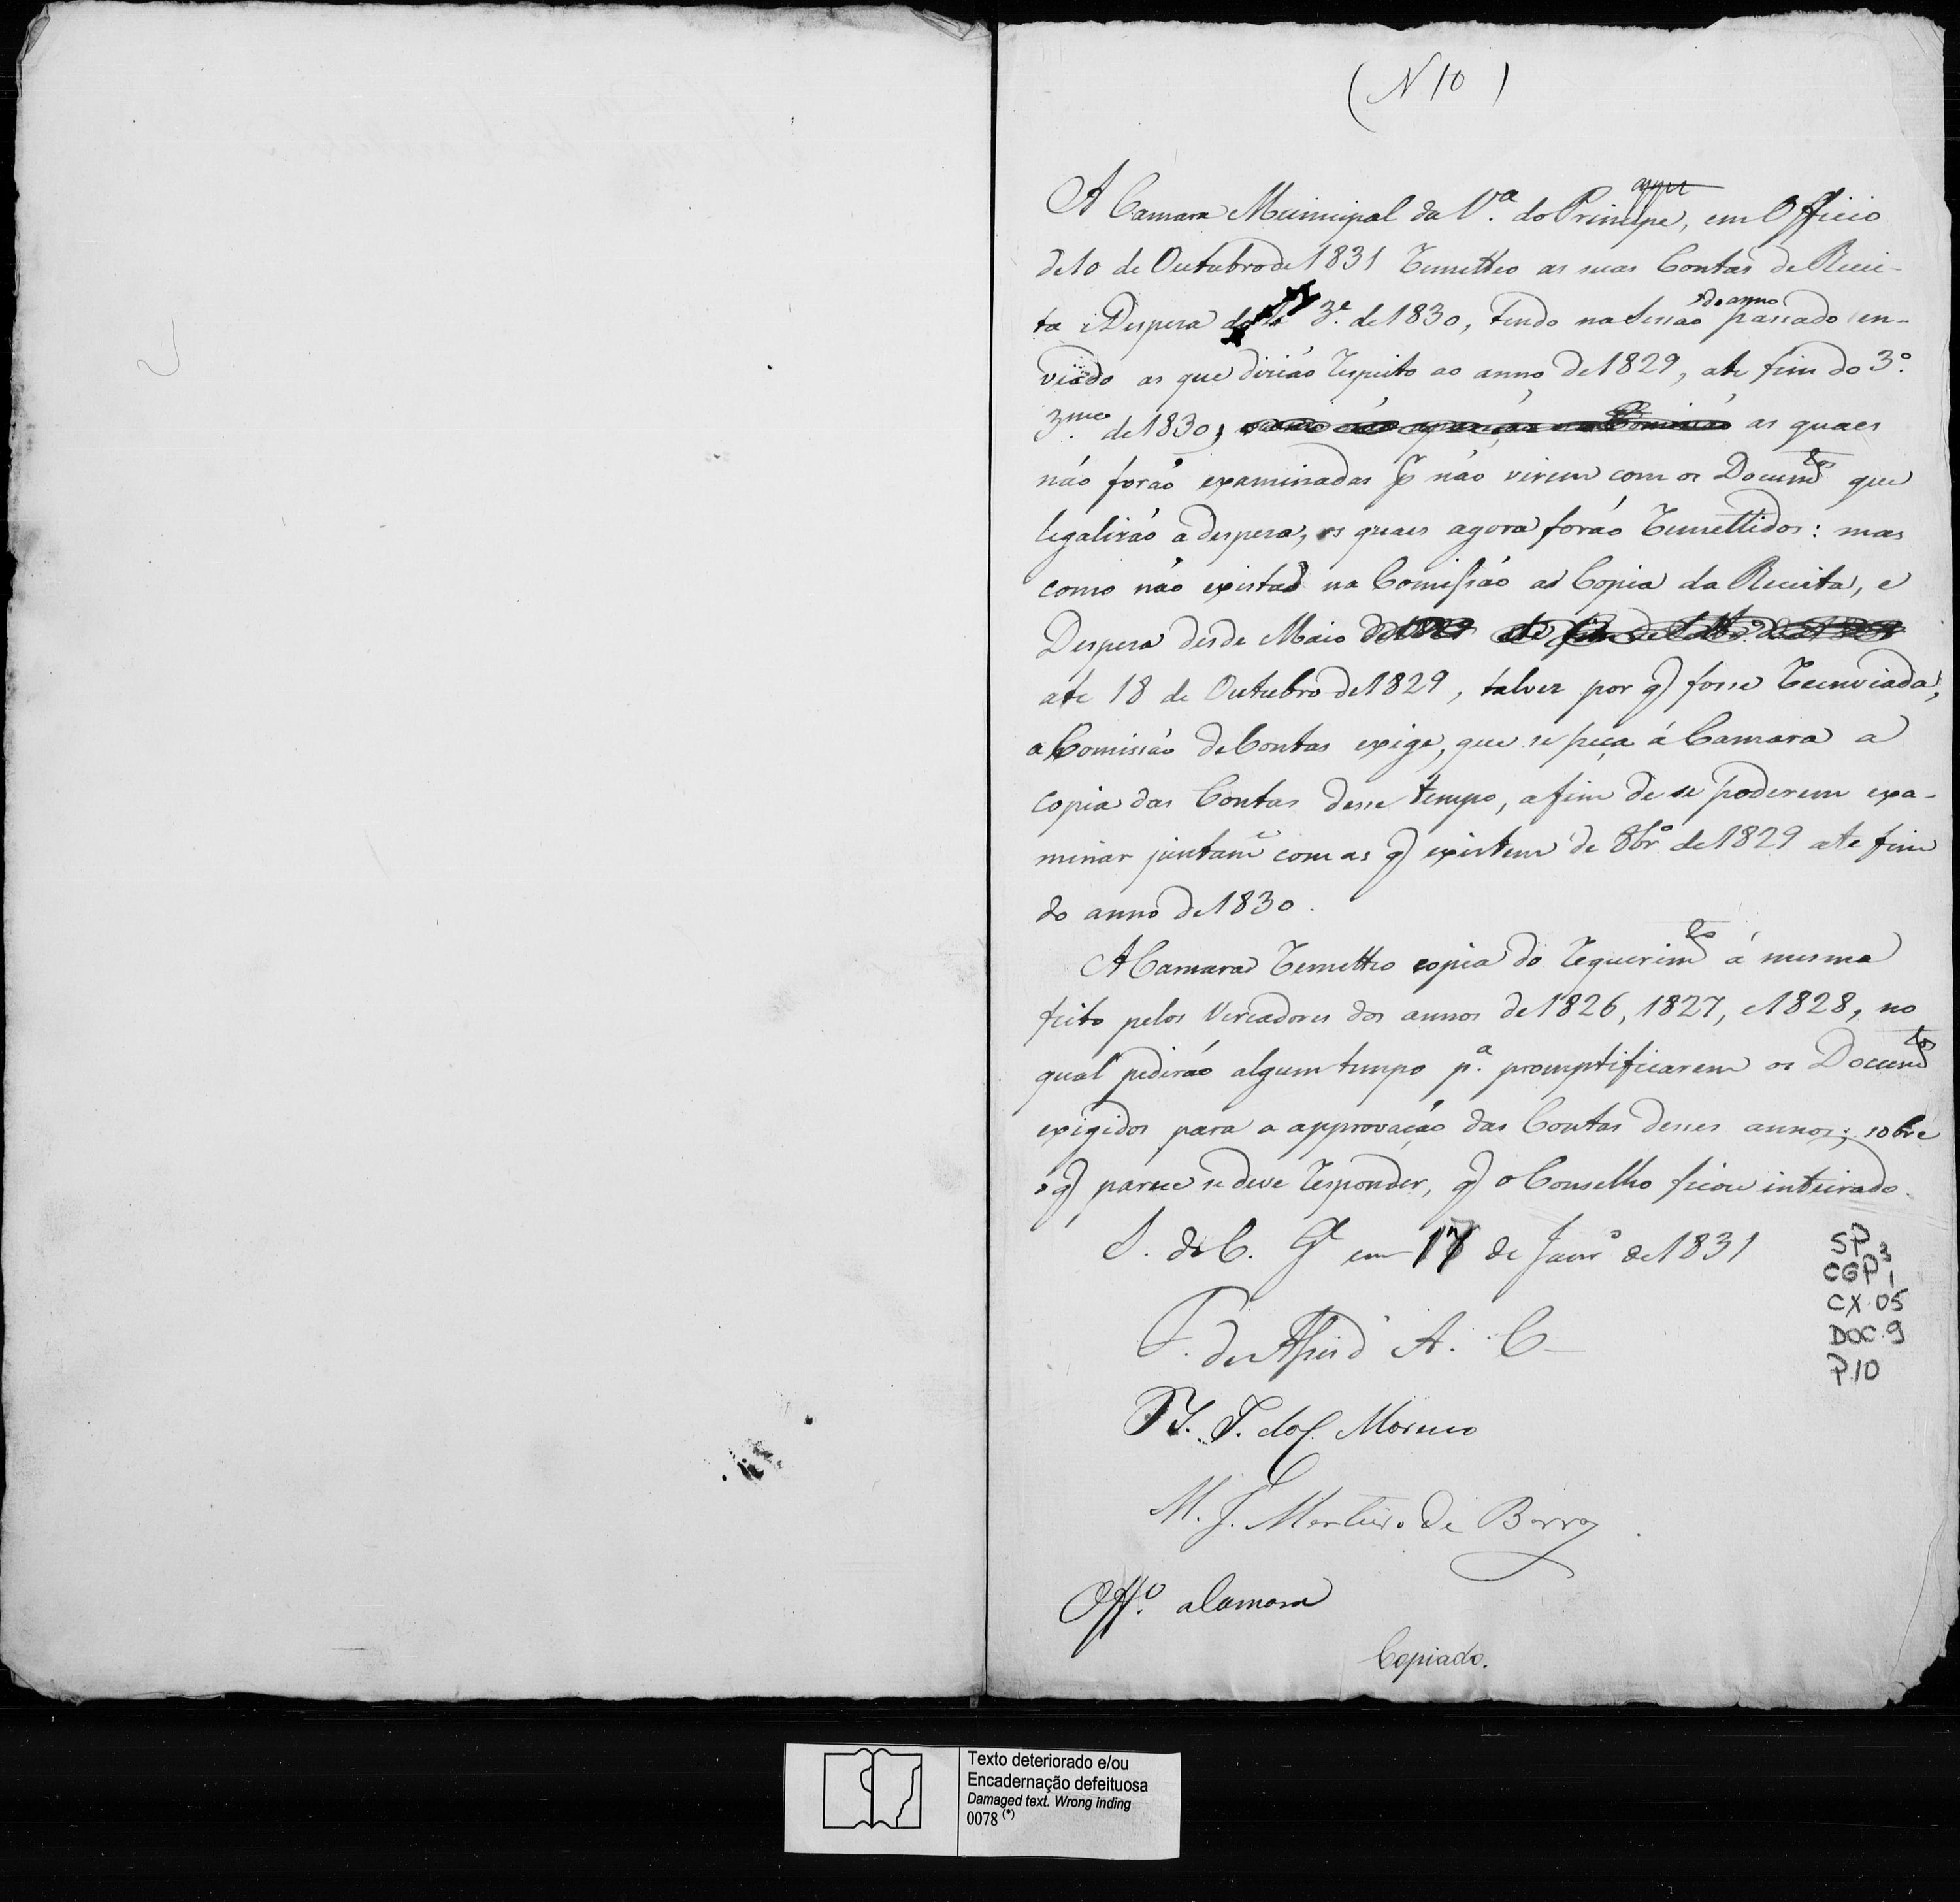 (N 10)
A Camara Municipal da V.ª do Principe, em Officio
de 10 de Outubro de 1831 remetteo as suas Contas de Recei-
ta e Despeza 3.e de 1830, tendo na Sessaõ do anno passado en-
viado as que diziáo respeito ao anno de 1829, ate fim do 3.º
3.me de 1830, as quaes
náo foraõ examinadas p náo virem com os Docum.tos que
legalizáo a despeza, os quaes agora foráo remettidos: mas
como não exista na Comissáo a Copia da Receita, e
Despeza desde Maio
ate 18 de Outubro de 1829, talvez por q fosse reenviada,
a Comissáo de Contas exige, que se peça á Camara a
copia das Contas desse tempo, afim de se poderem exa-
minar juntam.e com as q existem de 8br.º de 1829 ate fim
do anno de 1830.
A Camara remetteo copia do requerim.to á mesma
feito pelos Vereadores dos annos de 1826, 1827, e 1828, no
qual pediráo algum tempo p.ª promptificarem os Docum.tos
exigidos para a approvaçaõ das Contas desses annos; sobre
o q parece se deve responder, q o Conselho ficou inteirado.
S. do C. G.l em 17 de Janr.º de 1831
F. de A. C
F. do C. Moreno
M. J. Monteiro de Barros
Off.º a Camara
Copiado.
SP
CGP 1
CX. 05
DOC. 9
P. 10
Texto deteriorado e/ou
Encadernação defeituosa
Damaged text. Wrong inding
0078 (*)